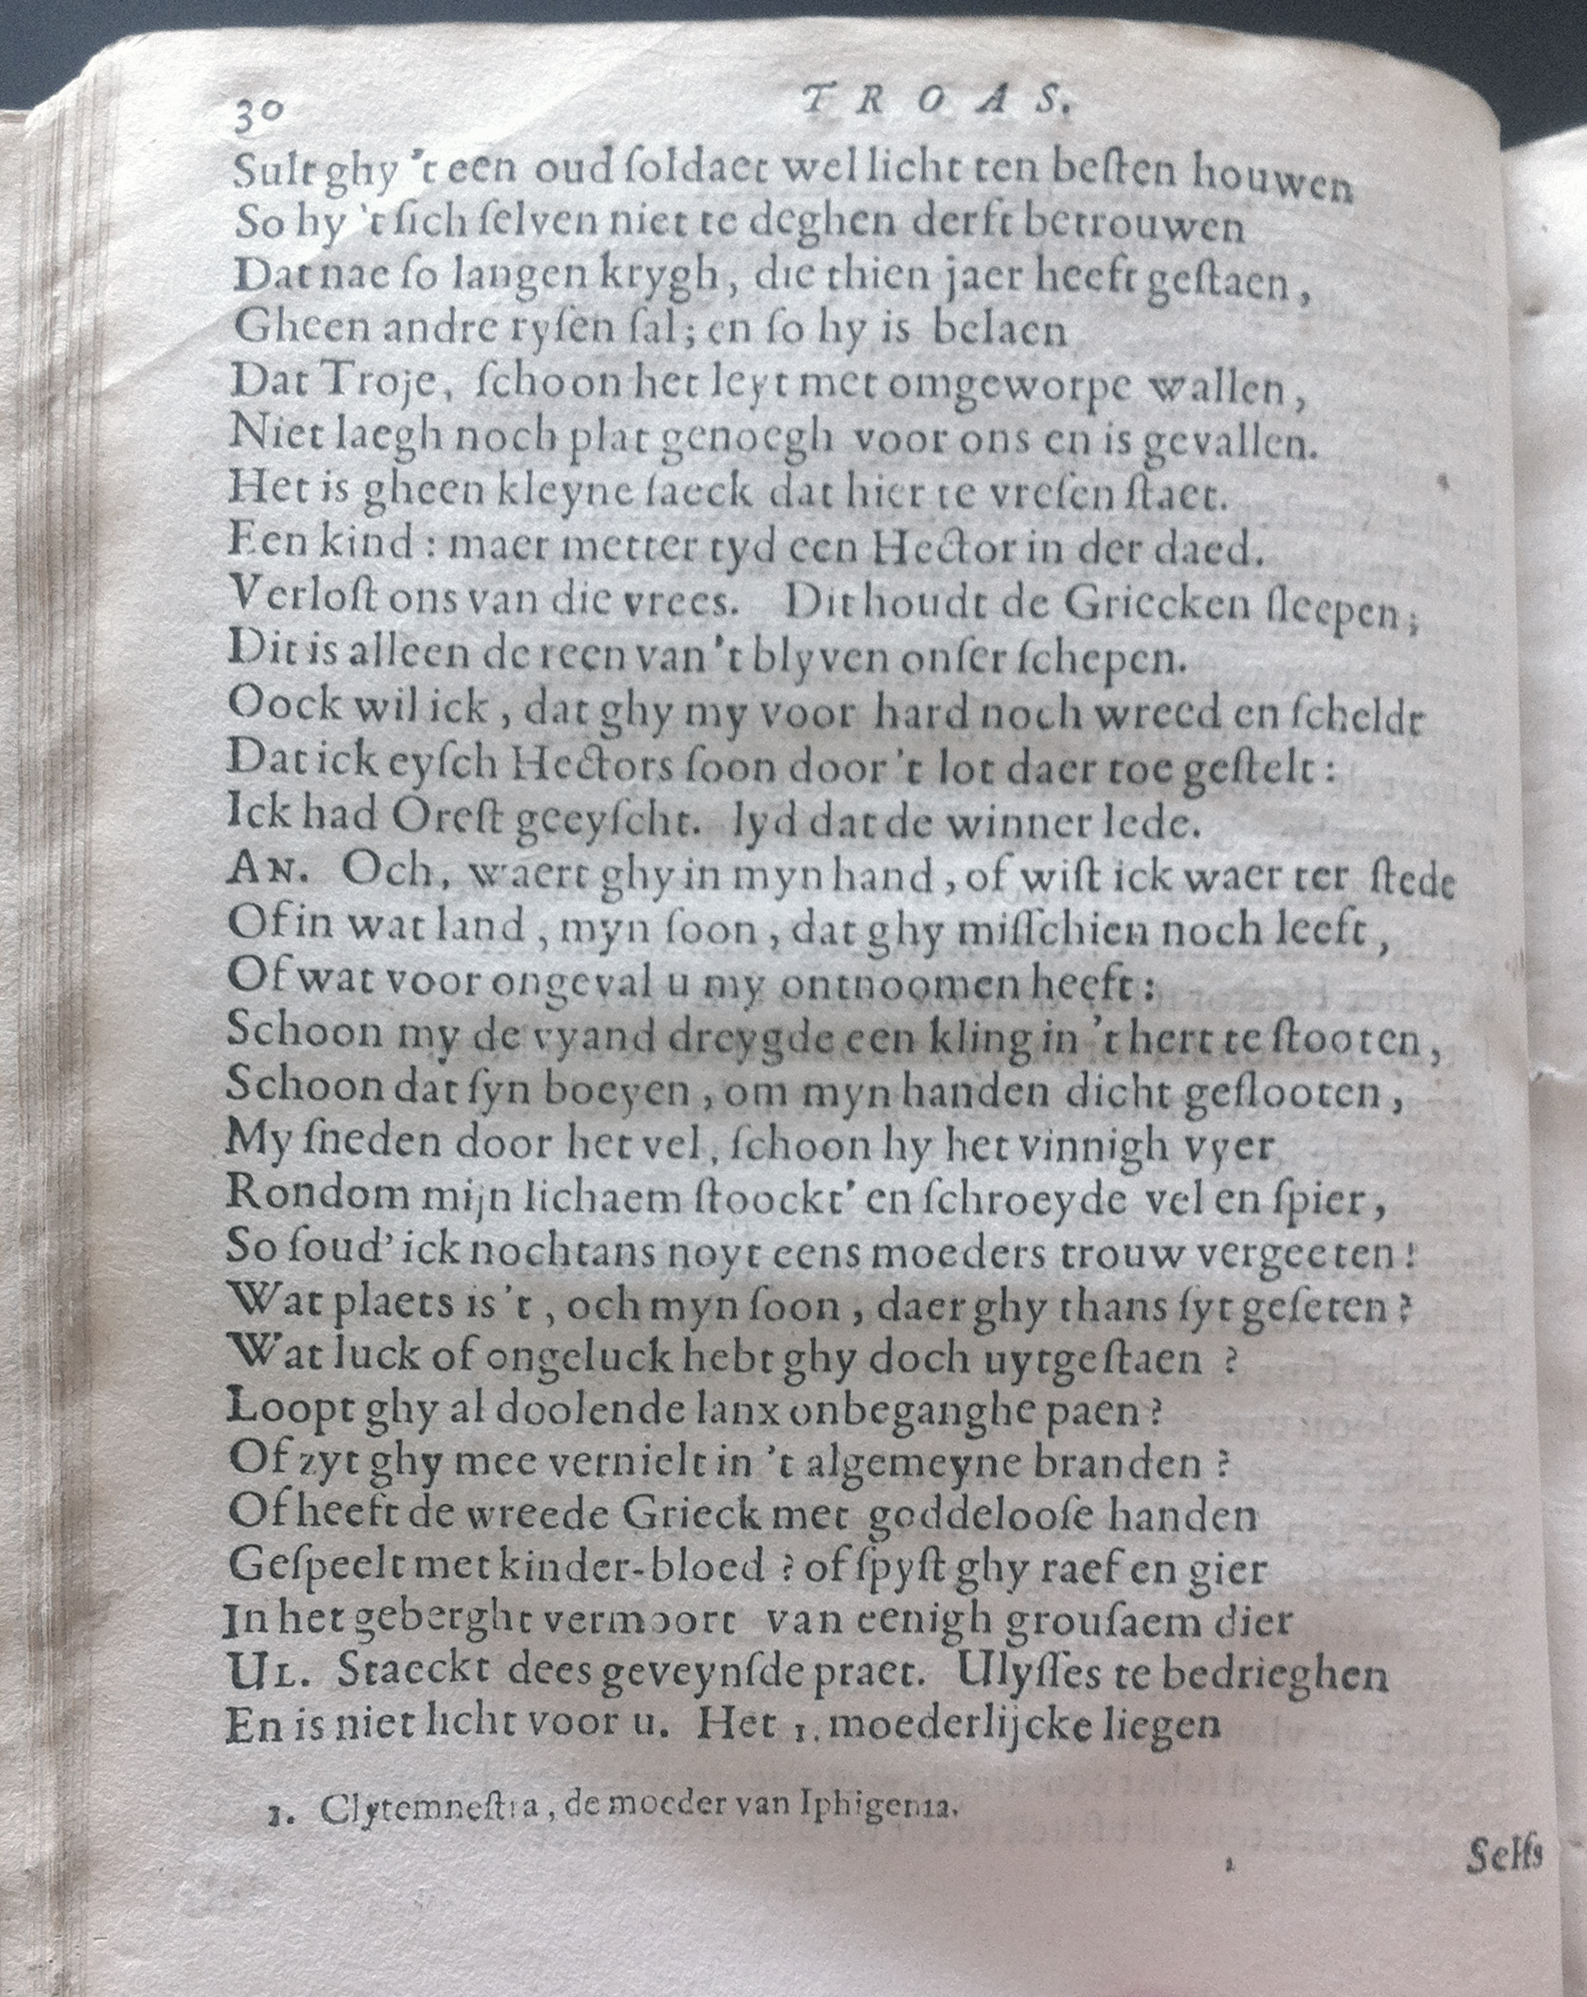 30 TROAS.
Sult ghy 't een oud ſoldaet wel licht ten beſten houwen
So hy 't ſich ſelven niet te deghen derft betrouwen
Dat nae ſo langen krygh, die thien jaer heeft geſtaen,
Gheen andre ryſen ſal; en ſo hy is belaen
Dat Troje, ſchoon het leyt met omgeworpe wallen,
Niet laegh noch plat genoegh voor ons en is gevallen.
Het is gheen kleyne ſaeck dat hier te vreſen ſtaet.
Een kind: maer metter tyd een Hector in der daed.
Verloſt ons van die vrees. Dit houdt de Griecken ſleepen;
Dit is alleen de reen van 't blyven onſer ſchepen.
Oock wil ick, dat ghy my voor hard noch wreed en ſcheldt
Dat ick eyſch Hectors ſoon door 't lot daer toe geſtelt:
Ick had Oreſt geeyſcht. lyd dat de winner lede.
AN. Och, waert ghy in myn hand, of wiſt ick waer ter ſtede
Of in wat land, myn ſoon, dat ghy miſſchien noch leeft,
Of wat voor ongeval u my ontnoomen heeft:
Schoon my de vyand dreygde een kling in 't hert te ſtooten,
Schoon dat ſyn boeyen, om myn handen dicht geſlooten,
My ſneden door het vel, ſchoon hy het vinnigh vyer
Rondom mijn lichaem ſtoockt' en ſchroeyde vel en ſpier,
So ſoud' ick nochtans noyt eens moeders trouw vergeeten!
Wat plaets is 't, och myn ſoon, daer ghy thans ſyt geſeten?
Wat luck of ongeluck hebt ghy doch uytgeſtaen?
Loopt ghy al doolende lanx onbeganghe paen?
Of zyt ghy mee vernielt in 't algemeyne branden?
Of heeft de wreede Grieck met goddelooſe handen
Geſpeelt met kinder-bloed? of ſpyſt ghy raef en gier
In het geberght vermoort van eenigh grouſaem dier
UL. Staeckt dees geveynſde praet. Ulyſſes te bedrieghen
En is niet licht voor u. Het 1. moederlijcke liegen
1. Clytemneſtra, de moeder van Iphigenia.
Selfs